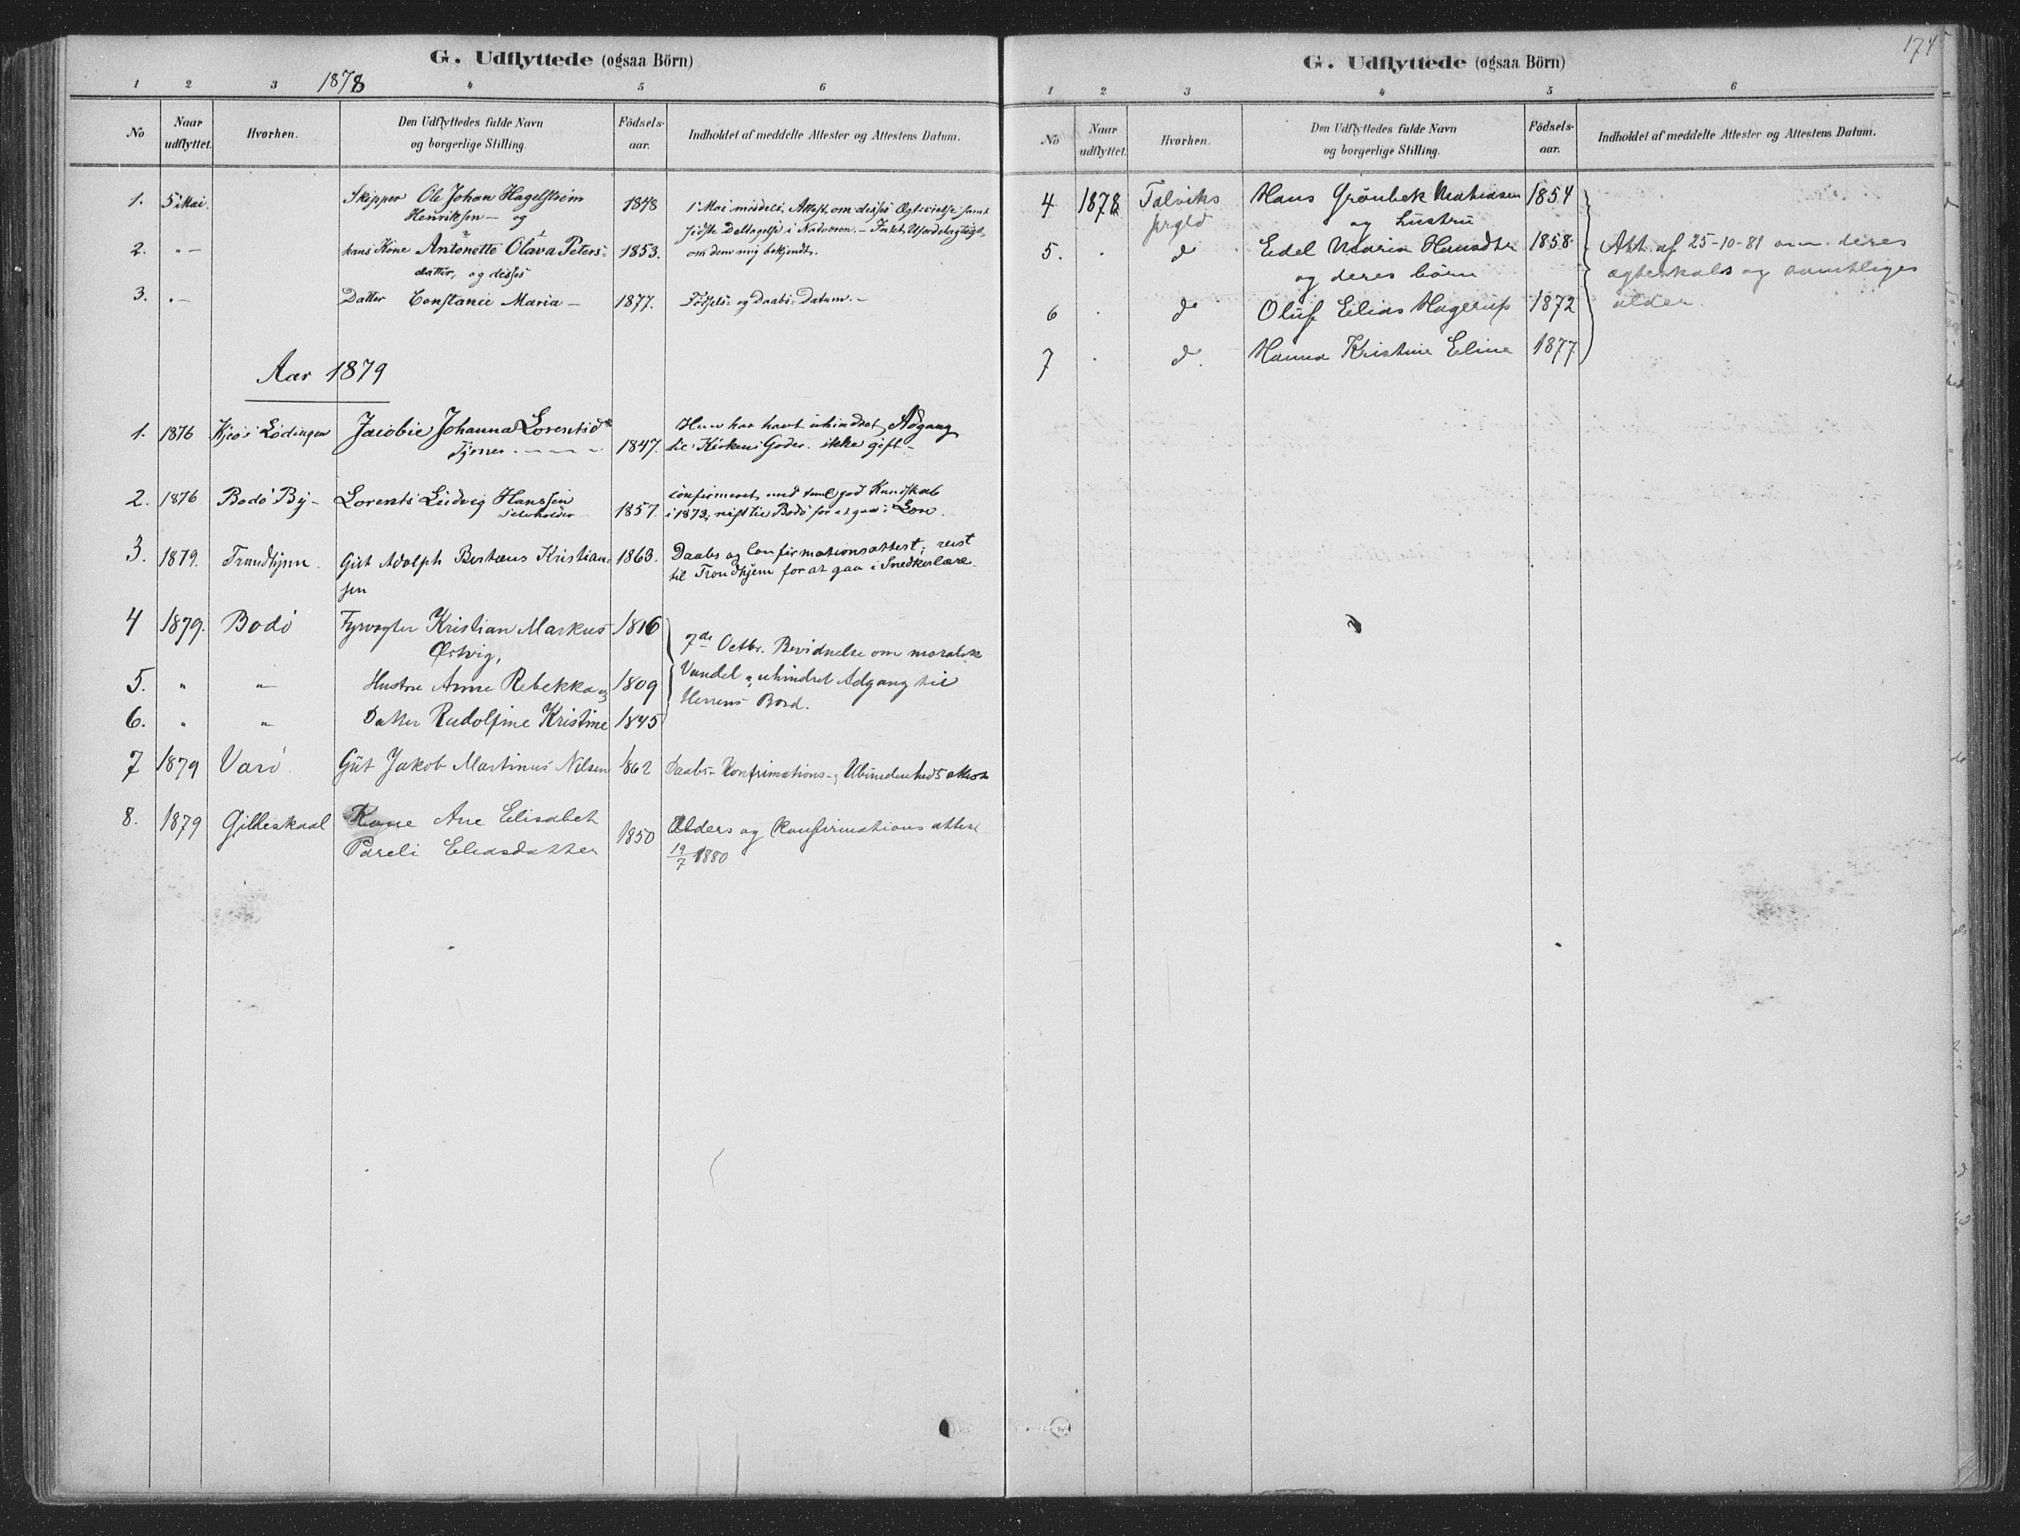 G. Udflyttede (ogsaa Börn)
1878
1 2 3 4 5 6
No
Naar udflyttet.
Hvorhen.
Den Udflyttedes fulde Navn og borgerlige Stilling.
Födsels-aar.
Indholdet af meddelte Attester og Attestens Datum.
1. 5 Mai. Skipper Ole Johan Hagelstrøm 1848 1 Mai meddelt Attest om disses Ægtevielse samt
Henriksen — og sidste Deltagelse i Nadveren. — Intet
2. "— hans Kone Antonette Olava Peters- 1853. om dem mig bekjendt.
datter, og disses
3. "— Datter Constance Maria — 1877. Fødsels og Daabs-Datum. —
Aar 1879
1. 1876 Lødingen Jacobie Johanna Lorentsd 1847. Hun har havt uhindret Adgang
til Kirkens Goder. ikke gift —
2. 1876 Bodø By — Lorents Ludvig Hanssen 1857. confirmeret med god Kundskab
i 1873, reist til Bodø for at gaa i Lære.
3. 1879. Trondhjem. Gut Adolph Kristian- 1863. Daabs og Confirmationsattest; reist
sen til Trondhjem for at gaa i Snedkerlære
4 1879. Bodø Fyrvogter Kristian Markus 1816
Østvig, 7de Octbr. Bevidnelse om moralsk
5. " " Hustru Anne Rebekka og 1809 Vandel og uhindret Adgang til
Herrens Bord.
6. " " Datter Rudolfine Kristine 1845
7 1879 Gut Jakob Martinus Nilsen 1862 Daabs- Konfirmations- og Ubundenhedsattest
8. 1879 Gildeskaal Kone Ane Elisabet 1850 Alders og Konfirmations attest
Pareli Eliasdatter 19/7 1880
174
G. Udflyttede (ogsaa Börn)
1 2 3 4 5 6
No
Naar udflyttet.
Hvorhen.
Den Udflyttedes fulde Navn og borgerlige Stilling.
Födsels-aar.
Indholdet af meddelte Attester og Attestens Datum.
4 1878 Talviks Hans Grønbek Mathiasen 1854
prgld og hustru
5. . d Edel Maria Hansdtr 1858. Att. af 25-10-81 om deres
og deres børn ægteskab og samtliges
6 . d Oluf Elias Hagerup 1872 alder.
7 . d. Hanna Kristine Eline 1877